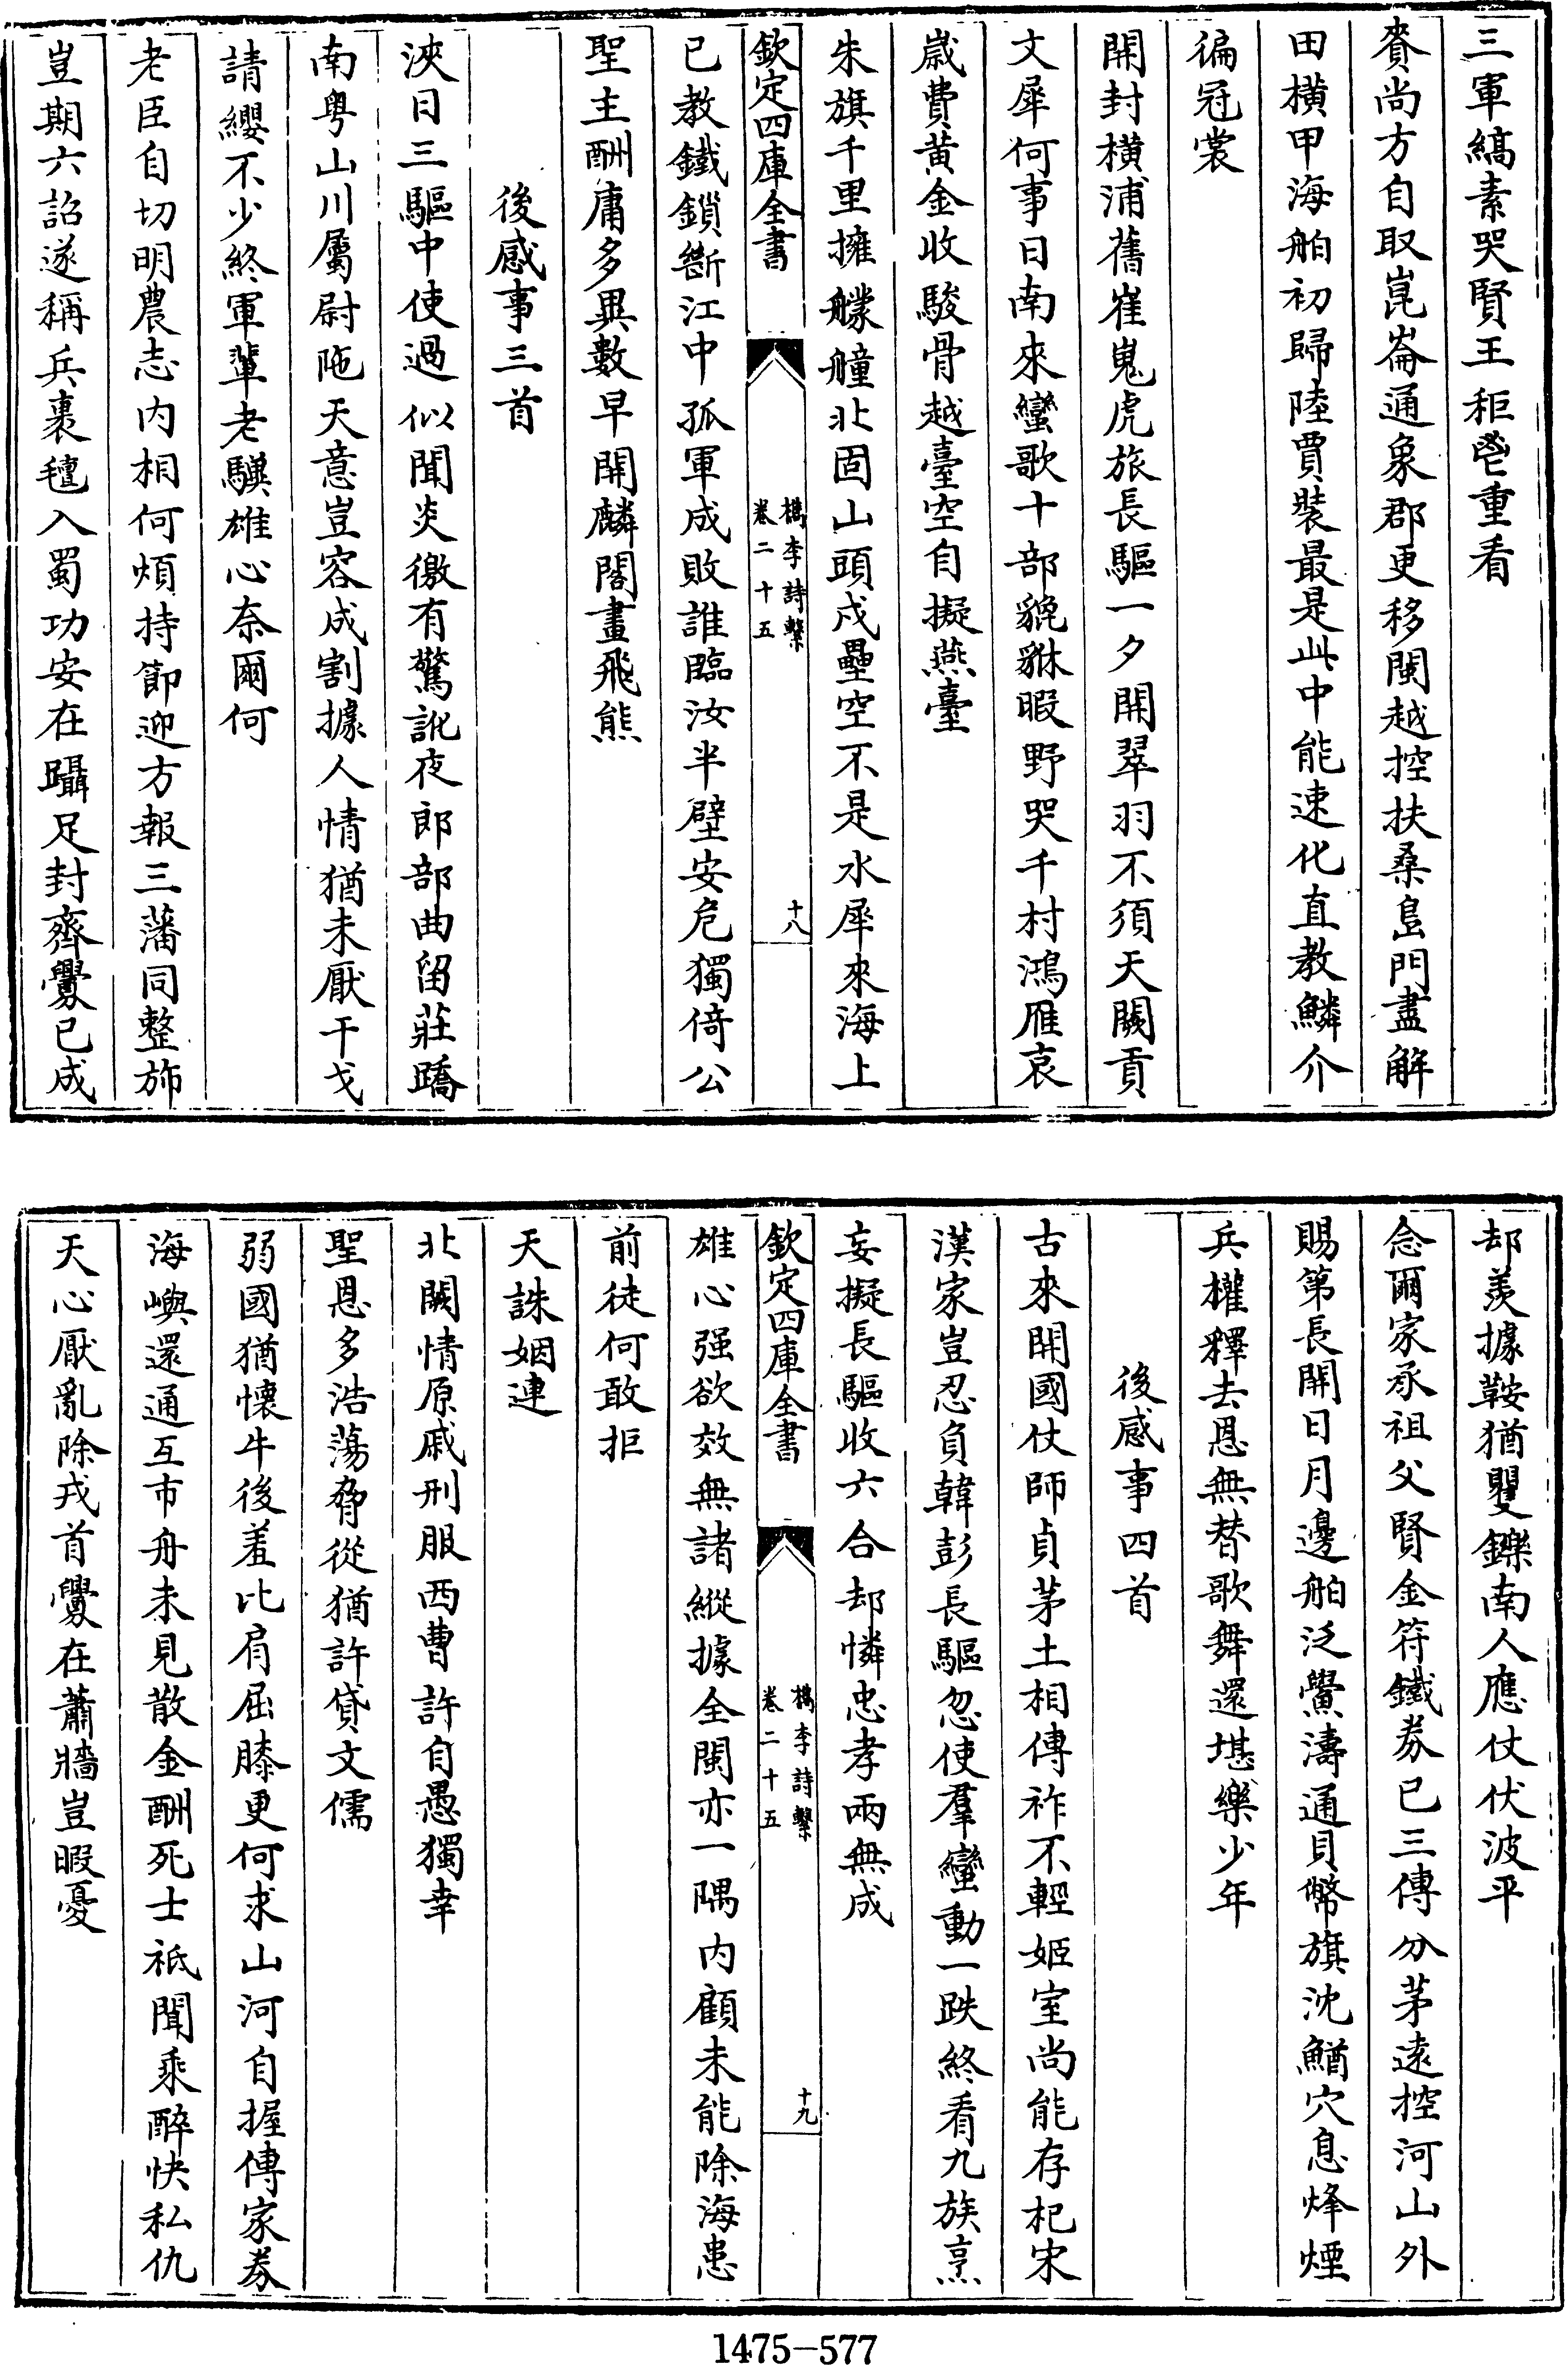 三軍縞素哭賢王秬鬯重看
賚尚方自取崑崙通象郡更移閩越控扶桑島門盡解
田橫甲海舶初歸陸賈裝最是此中能速化直教鱗介
徧冠裳
開封橫浦舊崔嵬虎旅長驅一夕開翠羽不須天闕貢
文犀何事日南來蠻歌十部貔貅暇野哭千村鴻雁哀
歲費黃金收駿骨越臺空自擬燕臺
朱旗千里擁艨艟北固山頭戍壘空不是水犀來海上
欽定四庫全書
檇李詩繫
卷二十五
十八
已教鐵鎖斷江中孤軍成敗誰臨汝半壁安危獨倚公
聖主酬庸多異數早開麟閣畫飛熊
後感事三首
浹日三驅中使過似聞炎徼有驚訛夜郎部曲留莊蹻
南粵山川屬尉陁天意豈容成割據人情猶未厭干戈
請纓不少終軍輩老驥雄心奈爾何
老臣自切明農志内相何煩持節迎方報三藩同整斾
豈期六詔遂稱兵裹氊入蜀功安在躡足封齊釁已成
却羨據鞍猶矍鑠南人應仗伏波平
念爾家承祖父賢金符鐵券已三傳分茅遠控河山外
賜第長開日月邊舶泛鱟濤通貝幣旗沈鰌穴息烽煙
兵權釋去恩無替歌舞還堪樂少年
後感事四首
古來開國仗師貞茅土相傳祚不輕姬室尚能存杞宋
漢家豈忍負韓彭長驅忽使羣蠻動一跌終看九族烹
妄擬長驅收六合却憐忠孝兩無成
欽定四庫全書
檇李詩繫
卷二十五
十九
雄心强欲效無諸縱據全閩亦一隅内顧未能除海患
前徒何敢拒
天誅姻連
北闕情原戚刑服西曹許自愚獨幸
聖恩多浩蕩脅從猶許貸文儒
弱國猶懷牛後羞比肩屈膝更何求山河自握傳家券
海嶼還通互市舟未見散金酬死士祇聞乘醉快私仇
天心厭亂除戎首釁在蕭牆豈暇憂
1475-577